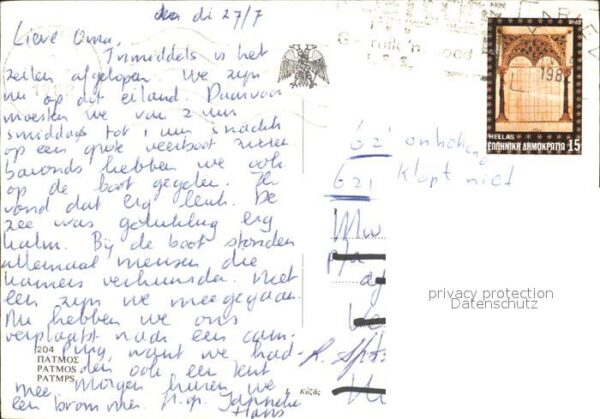 den di 27/7
Lieve Oma,
Inmiddels is het
zeilen afgelopen we zijn
nu op dit eiland. Daarvoor
moesten we van 2 uur
smiddags tot 1 uur s'nachts
op een grote veerboot zitten.
Savonds hebben we ook
op de boot gegeten. Ik
vond dat erg leuk. De
zee was gelukkig erg
kalm. Bij de boot stonden
allemaal mensen die
kamers verhuurden. Met
een zijn we meegegaan.
Nu hebben we ons
verplaatst naar een cam-
ping, want we had-
den ook een tent
mee. Morgen huren we
een brommer.
Hans
204
ΠΑΤΜΟΣ
PATMOS
PATMPS
HELLAS
ΕΛΛΗΝΙΚΗ ΔΗΜΟΚΡΑΤΙΑ 15
198
62' onbekend
621 klopt niet
Mw
p/a
privacy protection
Datenschutz